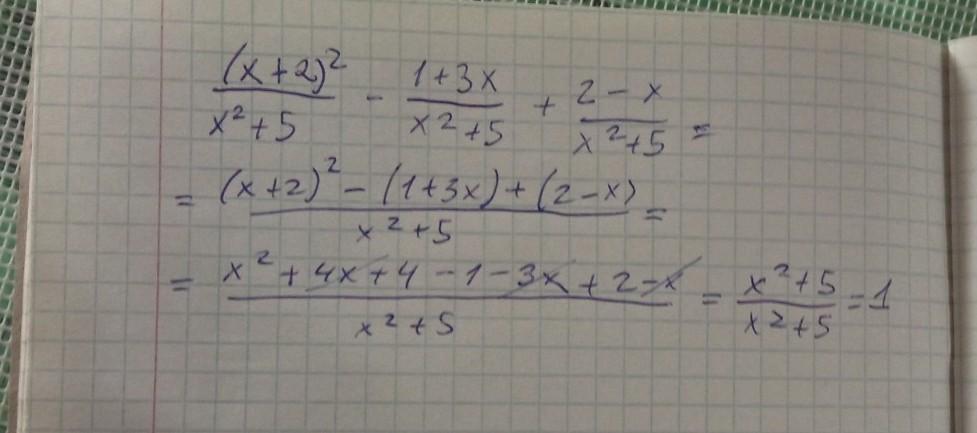 (x+2)²/(x²+5) - (1+3x)/(x²+5) + (2-x)/(x²+5) =
= ((x+2)² - (1+3x) + (2-x))/(x²+5) =
= (x² + 4x + 4 - 1 - 3x + 2 - x)/(x²+5) = (x²+5)/(x²+5) = 1